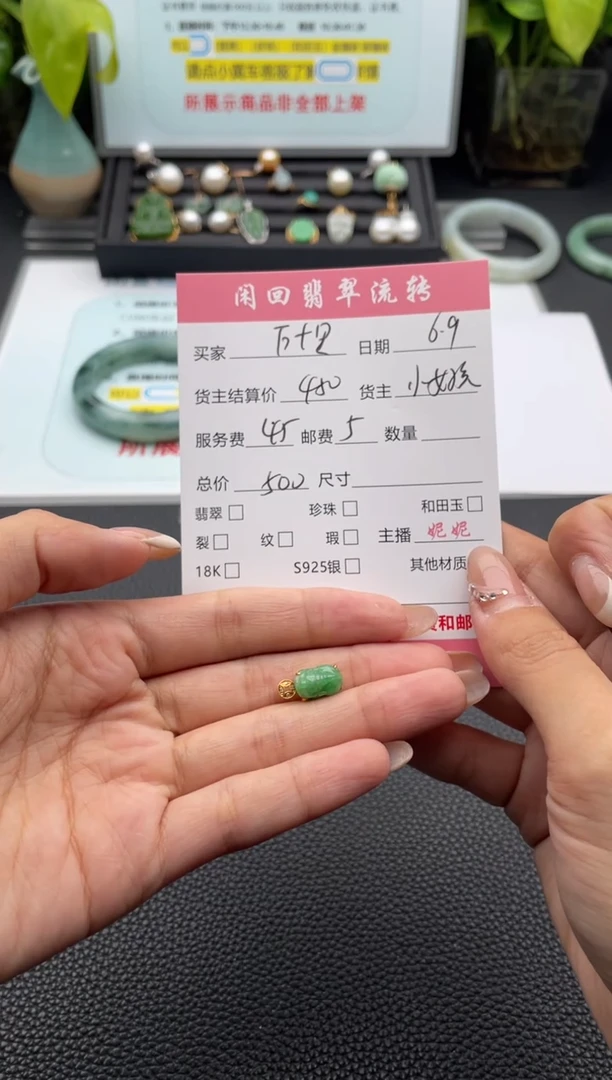 点小黄车客服了解
所展示商品非全部上架
闲回翡翠流转
买家 万十里 日期 6.9
货主结算价 450 货主 小女孩
服务费 45 邮费 5 数量
总价 500 尺寸
翡翠 珍珠 和田玉
裂 纹 瑕 主播 妮妮
18K S925银 其他材质
和邮
所展